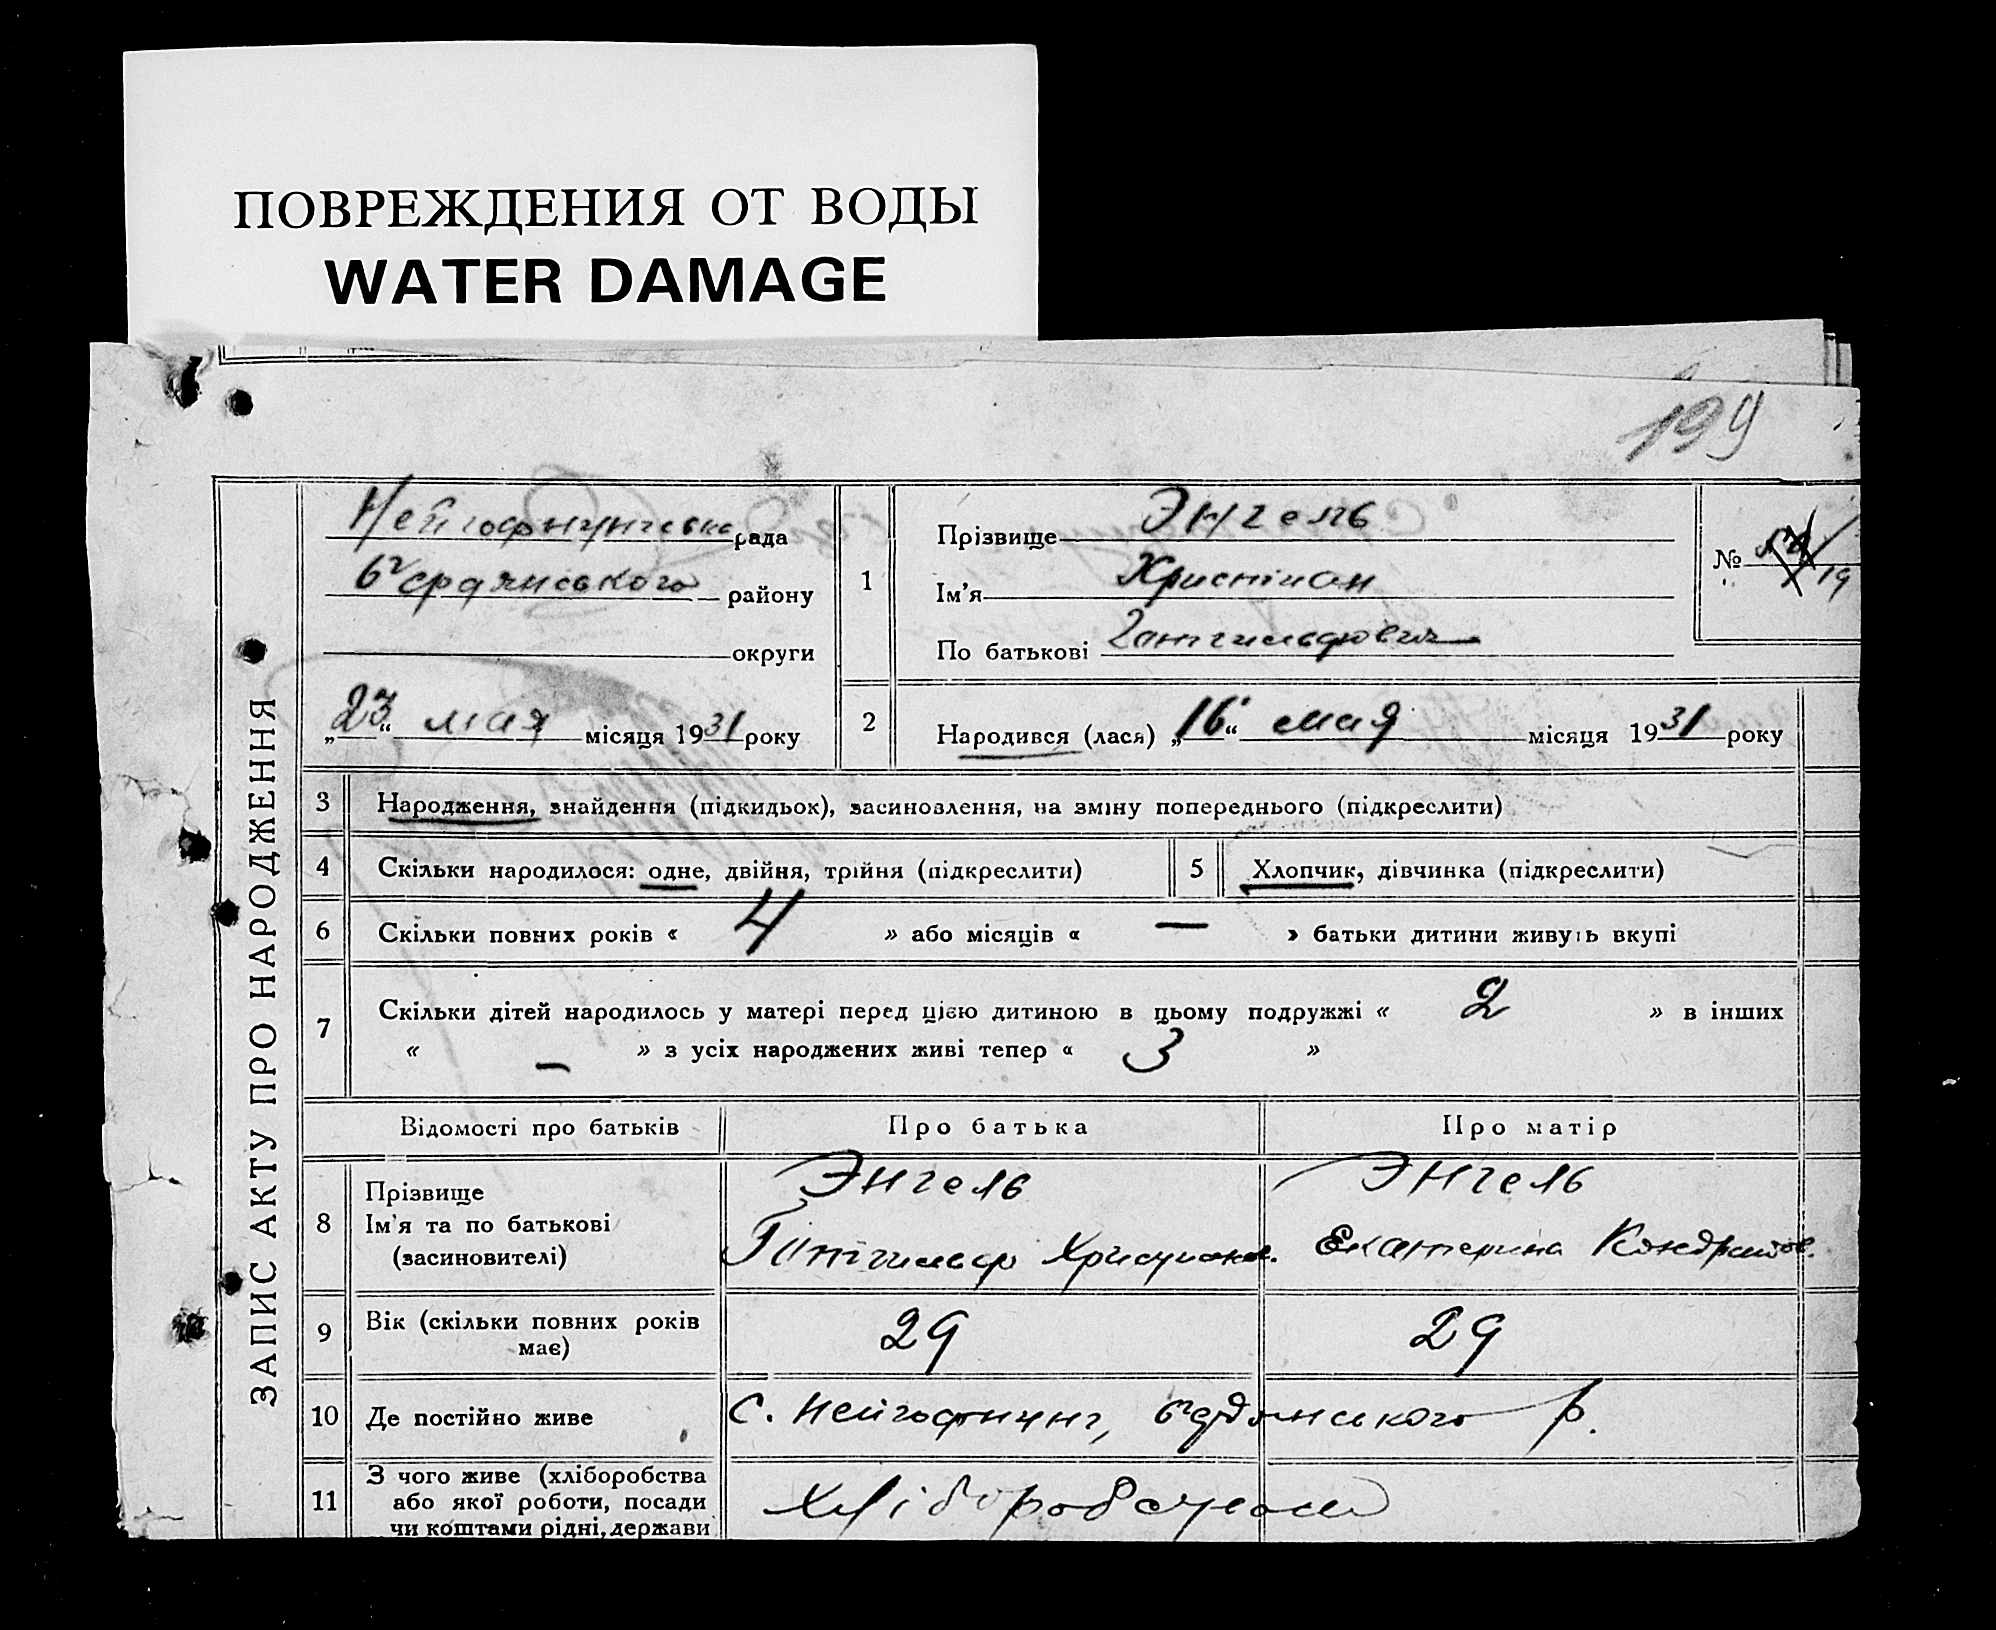 ПОВРЕЖДЕНИЯ ОТ ВОДЫ
WATER DAMAGE
199
ЗАПИС АКТУ ПРО НАРОДЖЕННЯ
Нейгофнунгська рада
Бердянського району
округи
„23“ мая місяця 1931 року
1
Прізвище Энгель
Ім’я Христиан
По батькові Готгильфович
№ 19
2
Народився (лася) „16“ мая місяця 1931 року
3 Народження, знайдення (підкидьох), засиновлення, на зміну попереднього (підкреслити)
4 Скільки народилося: одне, двійня, трійня (підкреслити)
5 Хлопчик, дівчинка (підкреслити)
6 Скільки повних років « 4 » або місяців « — » батьки дитини живуть вкупі
7 Скільки дітей народилось у матері перед цією дитиною в цьому подружжі « 2 » в інших
« — » з усіх народжених живі тепер « 3 »
Відомості про батьків Про батька Про матір
8 Прізвище Энгель Энгель
Ім’я та по батькові Готгильф Христианов. Екатерина Кондратов.
(засновителі)
9 Вік (скільки повних років має) 29 29
10 Де постійно живе с. Нейгофнунг, Бердянського р.
11 З чого живе (хліборобства
або якої роботи, посади
чи коштами рідні, держави
Хліборобством